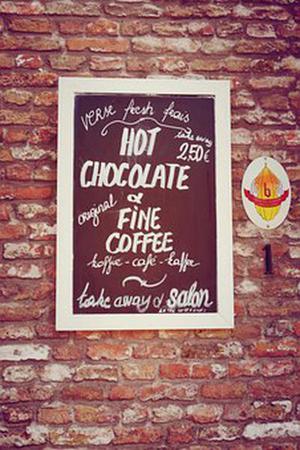 VERSE fresh frais
take away
HOT
2,50€
CHOCOLATE
&
original
FINE
COFFEE
koffie - café - kaffee
take away & salon
b